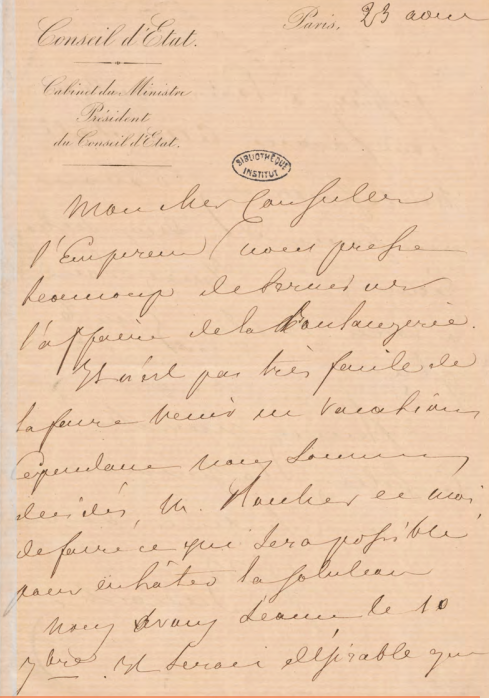 Conseil d'Etat.
Paris, 23 aout
Cabinet du Ministre
Président
du Conseil d'Etat.
BIBLIOTHÈQUE
INSTITUT
Mon cher Conseiller
l'Empereur nous presse
beaucoup de terminer
l'affaire de la Boulangerie.
Il n'est pas très facile de
la faire venir en vacations
cependant nous sommes
décidés M. Rouher et moi
de faire ce qui sera possible
pour en hâter la solution
nous avons séance le 10
7bre. Il serait désirable que